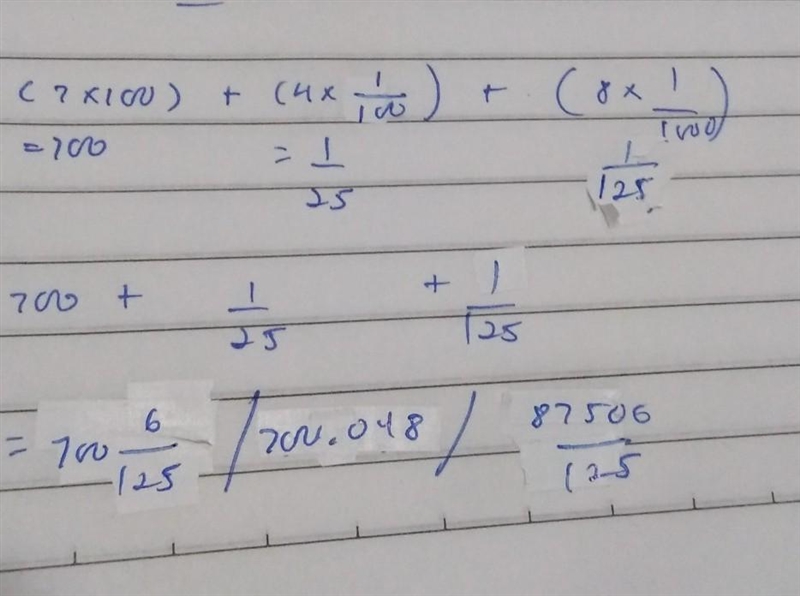 (7×100) + (4× 1/100) + (8× 1/1000)
=700 = 1/25 1/125
700 + 1/25 + 1/125
= 700 6/125 / 700.048 / 87506/125